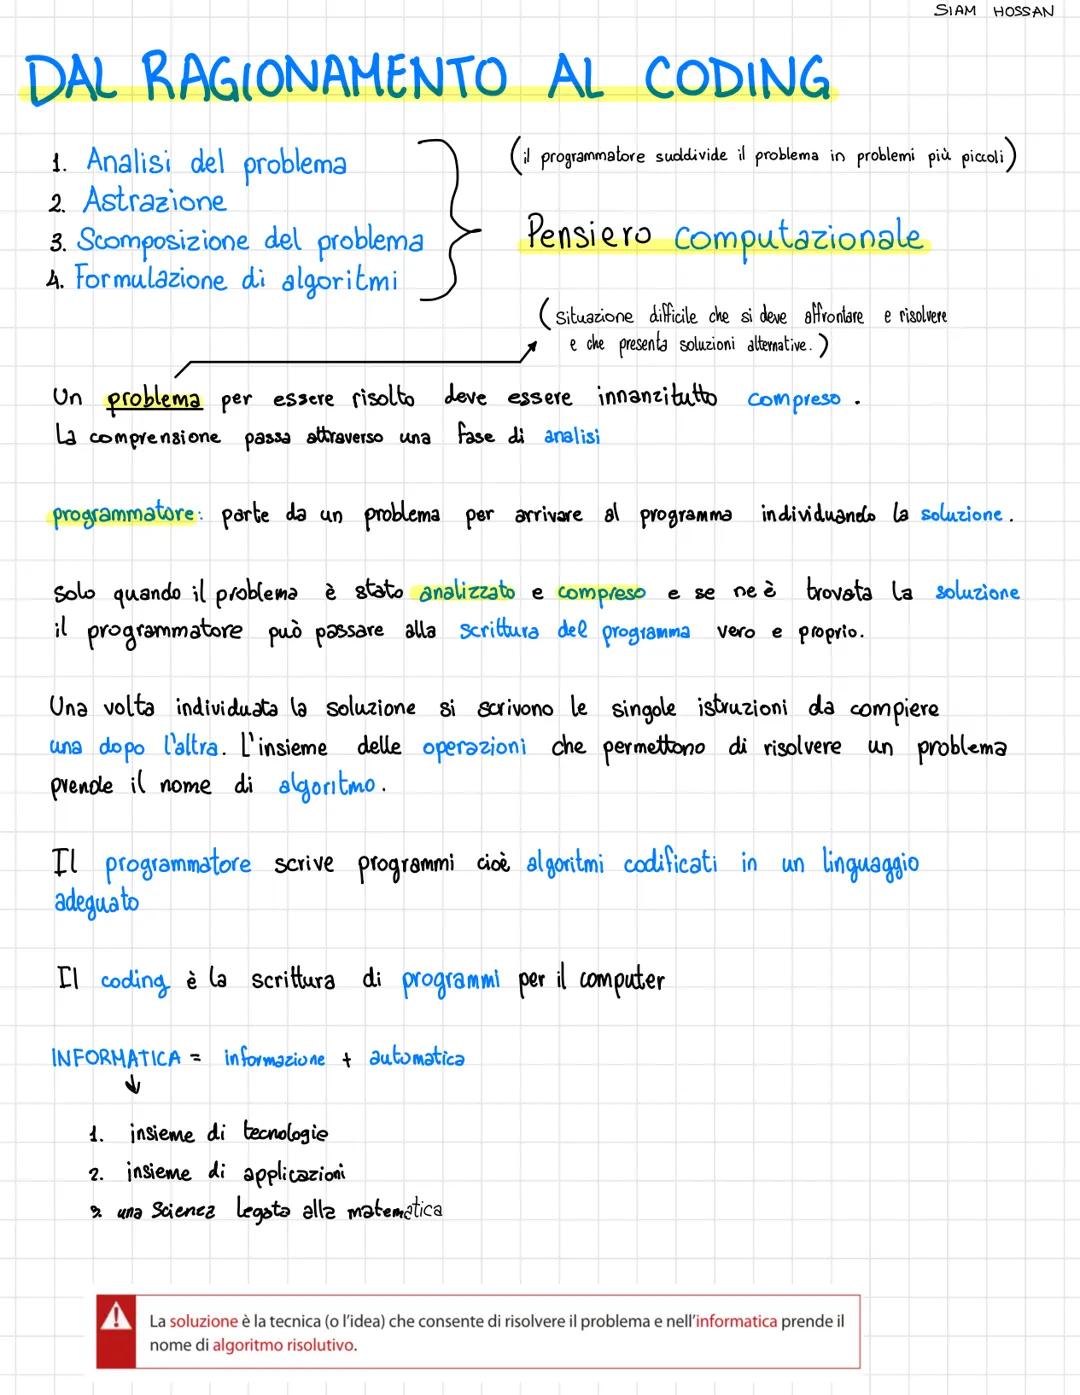 SIAM HOSSAN
DAL RAGIONAMENTO AL CODING
1. Analisi del problema
2. Astrazione
3. Scomposizione del problema
4. Formulazione di algoritmi
(il programmatore suddivide il problema in problemi più piccoli)
Pensiero computazionale
(situazione difficile che si deve affrontare e risolvere
e che presenta soluzioni alternative.)
Un problema per essere risolto deve essere innanzitutto compreso.
La comprensione passa attraverso una fase di analisi
programmatore: parte da un problema per arrivare al programma individuando la soluzione.
Solo quando il problema è stato analizzato e compreso e se ne è trovata la soluzione
il programmatore può passare alla scrittura del programma vero e proprio.
Una volta individuata la soluzione si scrivono le singole istruzioni da compiere
una dopo l'altra. L'insieme delle operazioni che permettono di risolvere un problema
prende il nome di algoritmo.
Il programmatore scrive programmi cioè algoritmi codificati in un linguaggio
adeguato
Il coding è la scrittura di programmi per il computer
INFORMATICA = informazione + automatica
1. insieme di tecnologie
2. insieme di applicazioni
3. una Scienza legata alla matematica
La soluzione è la tecnica (o l'idea) che consente di risolvere il problema e nell'informatica prende il
nome di algoritmo risolutivo.